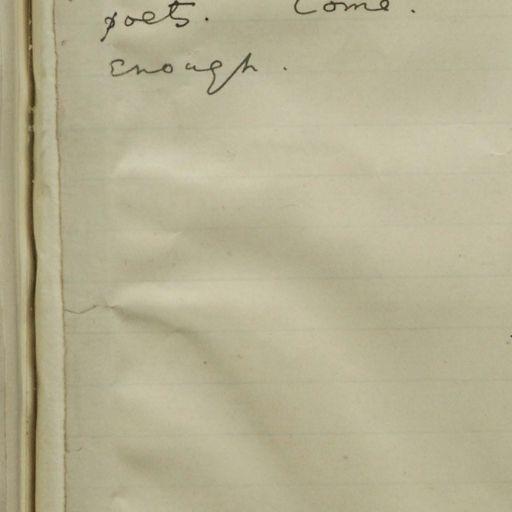 poets. Come.
enough.